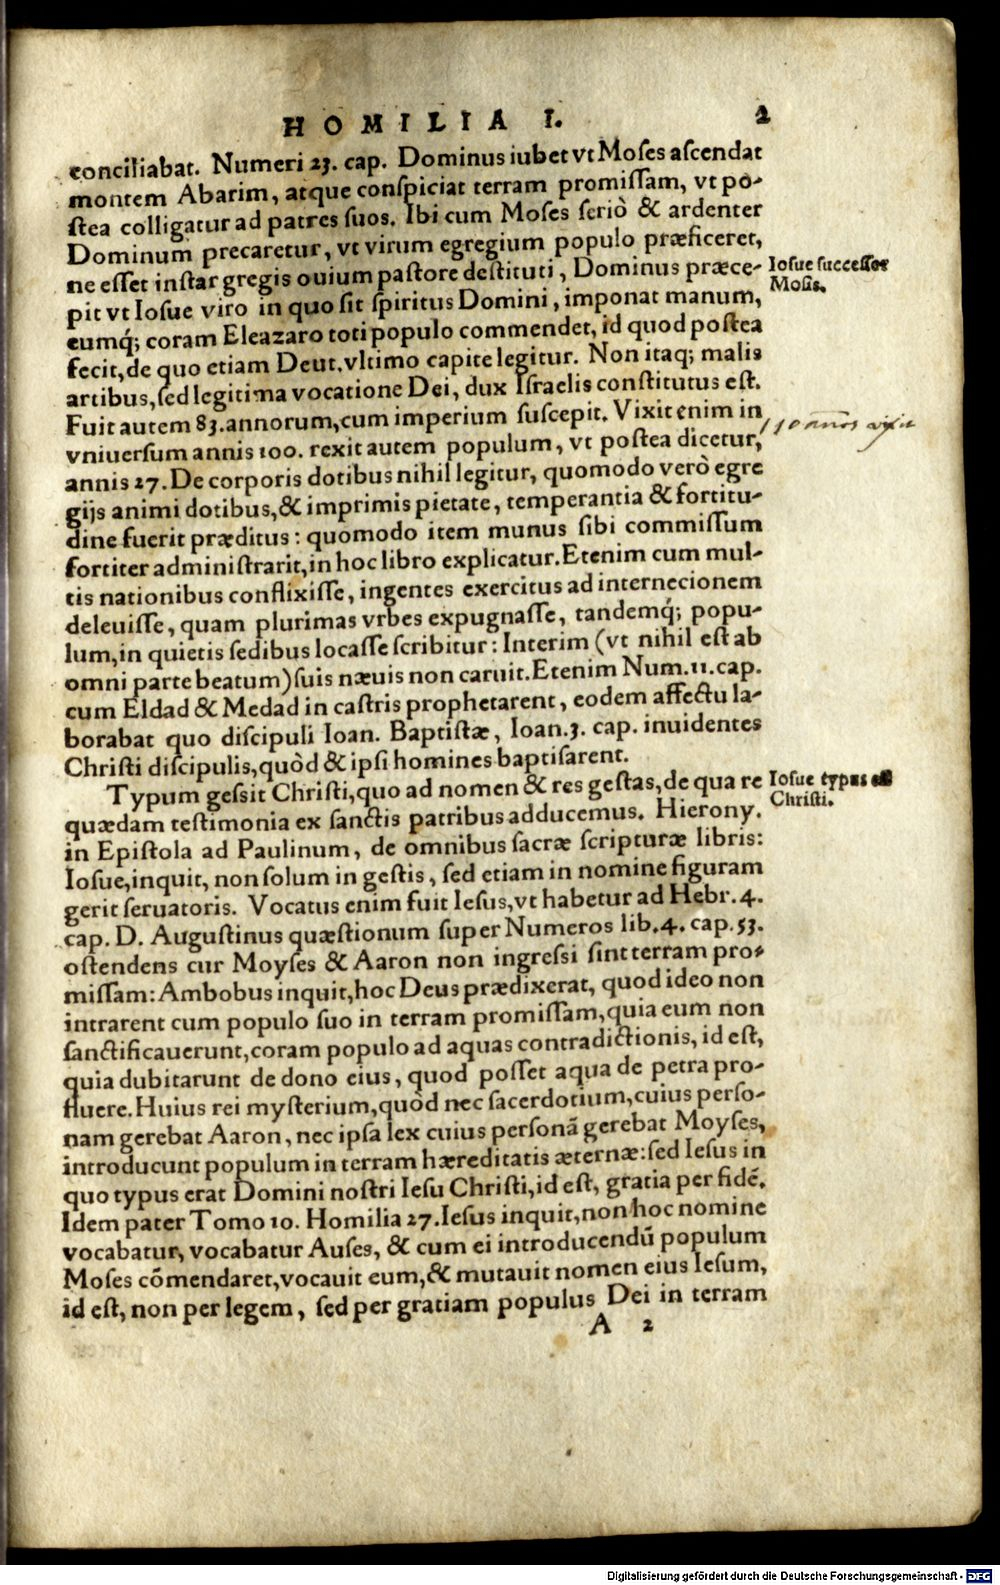 HOMILIA I. 2
conciliabat. Numeri 23. cap. Dominus iubet vt Moſes aſcendat
montem Abarim, atque conſpiciat terram promiſſam, vt po-
ſtea colligatur ad patres ſuos. Ibi cum Moſes ſeriò & ardenter
Dominum precaretur, vt virum egregium populo præficeret,
ne eſſet inſtar gregis ouium paſtore deſtituti, Dominus præce-
Ioſue ſucceſſor
Moſis.
pit vt Ioſue viro in quo ſit ſpiritus Domini, imponat manum,
eumq́; coram Eleazaro toti populo commendet, id quod poſtea
fecit, de quo etiam Deut. vltimo capite legitur. Non itaq; malis
artibus, ſed legitima vocatione Dei, dux Iſraelis conſtitutus eſt.
Fuit autem 83. annorum, cum imperium ſuſcepit. Vixit enim in
110 annos vixit
vniuerſum annis 100. rexit autem populum, vt poſtea dicetur,
annis 27. De corporis dotibus nihil legitur, quomodo verò egre
gijs animi dotibus, & imprimis pietate, temperantia & fortitu-
dine fuerit præditus: quomodo item munus ſibi commiſſum
fortiter adminiſtrarit, in hoc libro explicatur. Etenim cum mul-
tis nationibus conflixiſſe, ingentes exercitus ad internecionem
deleuiſſe, quam plurimas vrbes expugnaſſe, tandemq́; popu-
lum, in quietis ſedibus locaſſe ſcribitur: Interim (vt nihil eſt ab
omni parte beatum) ſuis næuis non caruit. Etenim Num. 11. cap.
cum Eldad & Medad in caſtris prophetarent, eodem affectu la-
borabat quo diſcipuli Ioan. Baptiſtæ, Ioan. 3. cap. inuidentes
Chriſti diſcipulis, quòd & ipſi homines baptiſarent.
Typum geſsit Chriſti, quo ad nomen & res geſtas, de qua re
Ioſue typus est
Chriſti.
quædam teſtimonia ex ſanctis patribus adducemus. Hierony.
in Epiſtola ad Paulinum, de omnibus ſacræ ſcripturæ libris:
Ioſue, inquit, non ſolum in geſtis, ſed etiam in nomine figuram
gerit ſeruatoris. Vocatus enim fuit Ieſus, vt habetur ad Hebr. 4.
cap. D. Auguſtinus quæſtionum ſuper Numeros lib. 4. cap. 53.
oſtendens cur Moyſes & Aaron non ingreſsi ſint terram pro-
miſſam: Ambobus inquit, hoc Deus prædixerat, quod ideo non
intrarent cum populo ſuo in terram promiſſam, quia eum non
ſanctificauerunt, coram populo ad aquas contradictionis, id eſt,
quia dubitarunt de dono eius, quod poſſet aqua de petra pro-
fluere. Huius rei myſterium, quòd nec ſacerdotium, cuius perſo-
nam gerebat Aaron, nec ipſa lex cuius perſonã gerebat Moyſes,
introducunt populum in terram hæreditatis æternæ: ſed Ieſus in
quo typus erat Domini noſtri Ieſu Chriſti, id eſt, gratia per fidẽ.
Idem pater Tomo 10. Homilia 27. Ieſus inquit, non hoc nomine
vocabatur, vocabatur Auſes, & cum ei introducendũ populum
Moſes cõmendaret, vocauit eum, & mutauit nomen eius Ieſum,
id eſt, non per legem, ſed per gratiam populus Dei in terram
A 2
Digitalisierung gefördert durch die Deutsche Forschungsgemeinschaft - DFG